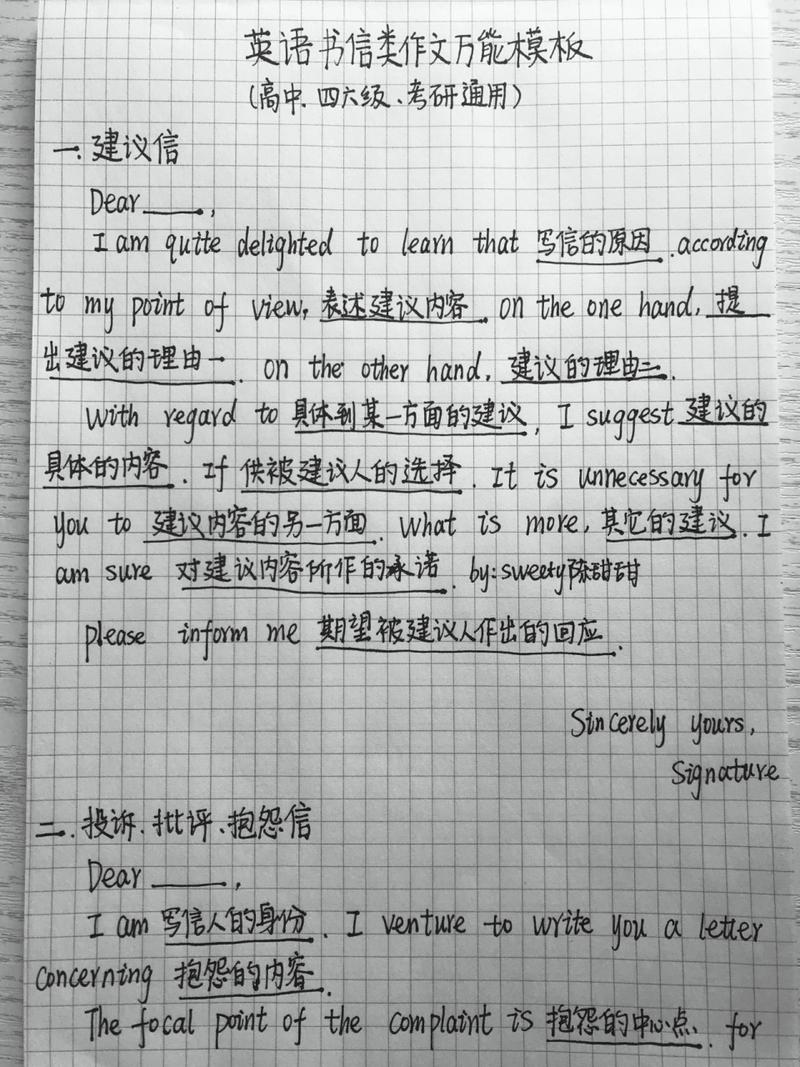 英语书信类作文万能模板
(高中.四六级、考研通用)
一.建议信
Dear____,
I am quite delighted to learn that 写信的原因.according
to my point of view, 表述建议内容. on the one hand, 提
出建议的理由一. on the other hand, 建议的理由二.
With regard to 具体到某一方面的建议, I suggest 建议的
具体的内容. If 供被建议人的选择. It is unnecessary for
you to 建议内容的另一方面. What is more, 其它的建议. I
am sure 对建议内容所作的承诺. by:sweety陈甜甜
please inform me 期望被建议人作出的回应.
Sincerely yours,
Signature
二.投诉、批评、抱怨信
Dear ____,
I am 写信人的身份. I venture to write you a letter
concerning 抱怨的内容.
The focal point of the complaint is 抱怨的中心点. for